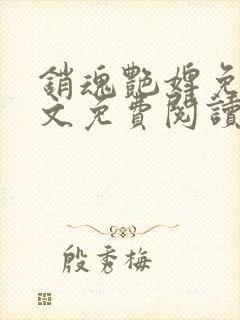 銷魂艷婢免
文免費閱讀
殷秀梅